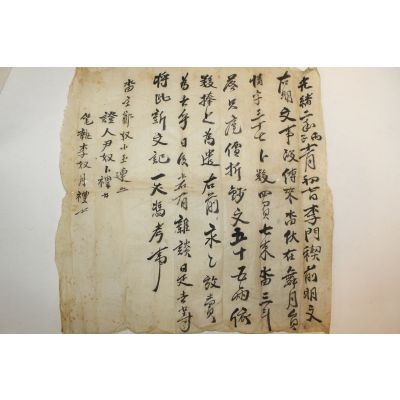 光緒二年丙子十一月初十日李門稧前明文
右明文事段傳來畓伏在舞月員
情字三十七卜數四負七束畓三斗
落只庫價折錢文五十五兩依
數捧上爲遣右前永永放賣
爲去乎日後若有雜談是去等
將此新文記一以憑考事
畓主鄭奴小玉連
證人尹奴卜禮
筆執李奴月禮